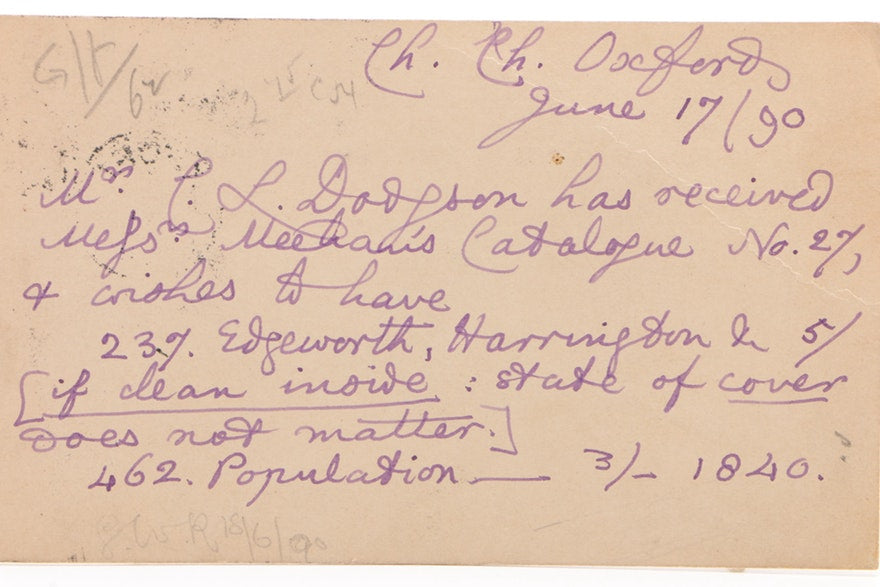 Ch. Ch. Oxford
June 17/90
Mr. C. L. Dodgson has received
Messrs. Meehan's Catalogue No. 27,
& wishes to have
237. Edgeworth, Harrington & 5/
[if clean inside : state of cover
does not matter.]
462. Population — 3/- 1840.
18/6/90